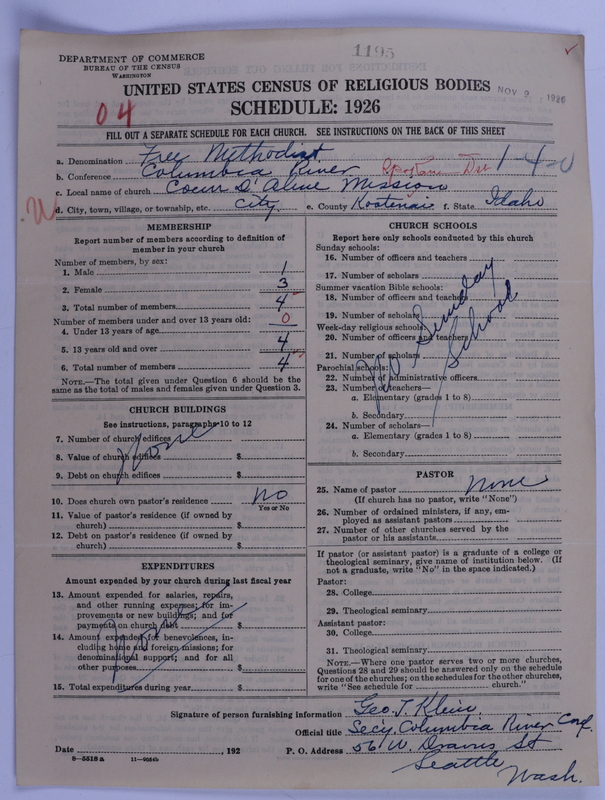 1195
DEPARTMENT OF COMMERCE
BUREAU OF THE CENSUS
WASHINGTON
UNITED STATES CENSUS OF RELIGIOUS BODIES
NOV 9 1926
SCHEDULE: 1926
04
FILL OUT A SEPARATE SCHEDULE FOR EACH CHURCH. SEE INSTRUCTIONS ON THE BACK OF THIS SHEET
a. Denomination Free Methodist 1-4-0
b. Conference Columbia River
c. Local name of church Coeur D'Alene Mission
W
d. City, town, village, or township, etc. City e. County Kootenai f. State Idaho
MEMBERSHIP
Report number of members according to definition of member in your church
Number of members, by sex:
1. Male 1
2. Female 3
3. Total number of members 4
Number of members under and over 13 years old:
4. Under 13 years of age 0
5. 13 years old and over 4
6. Total number of members 4
NOTE.—The total given under Question 6 should be the same as the total of males and females given under Question 3.
CHURCH BUILDINGS
See instructions, paragraphs 10 to 12
7. Number of church edifices
8. Value of church edifices $
9. Debt on church edifices $
None
10. Does church own pastor's residence No
Yes or No
11. Value of pastor's residence (if owned by church) $
12. Debt on pastor's residence (if owned by church) $
EXPENDITURES
Amount expended by your church during last fiscal year
13. Amount expended for salaries, repairs, and other running expenses; for improvements or new buildings; and for payments on church debt $
14. Amount expended for benevolences, including home and foreign missions; for denominational support; and for all other purposes $
15. Total expenditures during year $
None
CHURCH SCHOOLS
Report here only schools conducted by this church
Sunday schools:
16. Number of officers and teachers
17. Number of scholars
Summer vacation Bible schools:
18. Number of officers and teachers
19. Number of scholars
Week-day religious schools:
20. Number of officers and teachers
21. Number of scholars
Parochial schools:
22. Number of administrative officers
23. Number of teachers—
a. Elementary (grades 1 to 8)
b. Secondary
24. Number of scholars—
a. Elementary (grades 1 to 8)
b. Secondary
No Sunday School
PASTOR
25. Name of pastor None
(If church has no pastor, write "None")
26. Number of ordained ministers, if any, employed as assistant pastors
27. Number of other churches served by the pastor or his assistants
If pastor (or assistant pastor) is a graduate of a college or theological seminary, give name of institution below. (If not a graduate, write "No" in the space indicated.)
Pastor:
28. College
29. Theological seminary
Assistant pastor:
30. College
31. Theological seminary
NOTE.—Where one pastor serves two or more churches, Questions 28 and 29 should be answered only on the schedule for one of the churches; on the schedules for the other churches, write "See schedule for church."
Signature of person furnishing information Geo. T. Klein
Official title Sec'y. Columbia River Conf.
Date , 192 P. O. Address 56 W. Dravus St
Seattle Wash.
8-5518 a 11-9024b